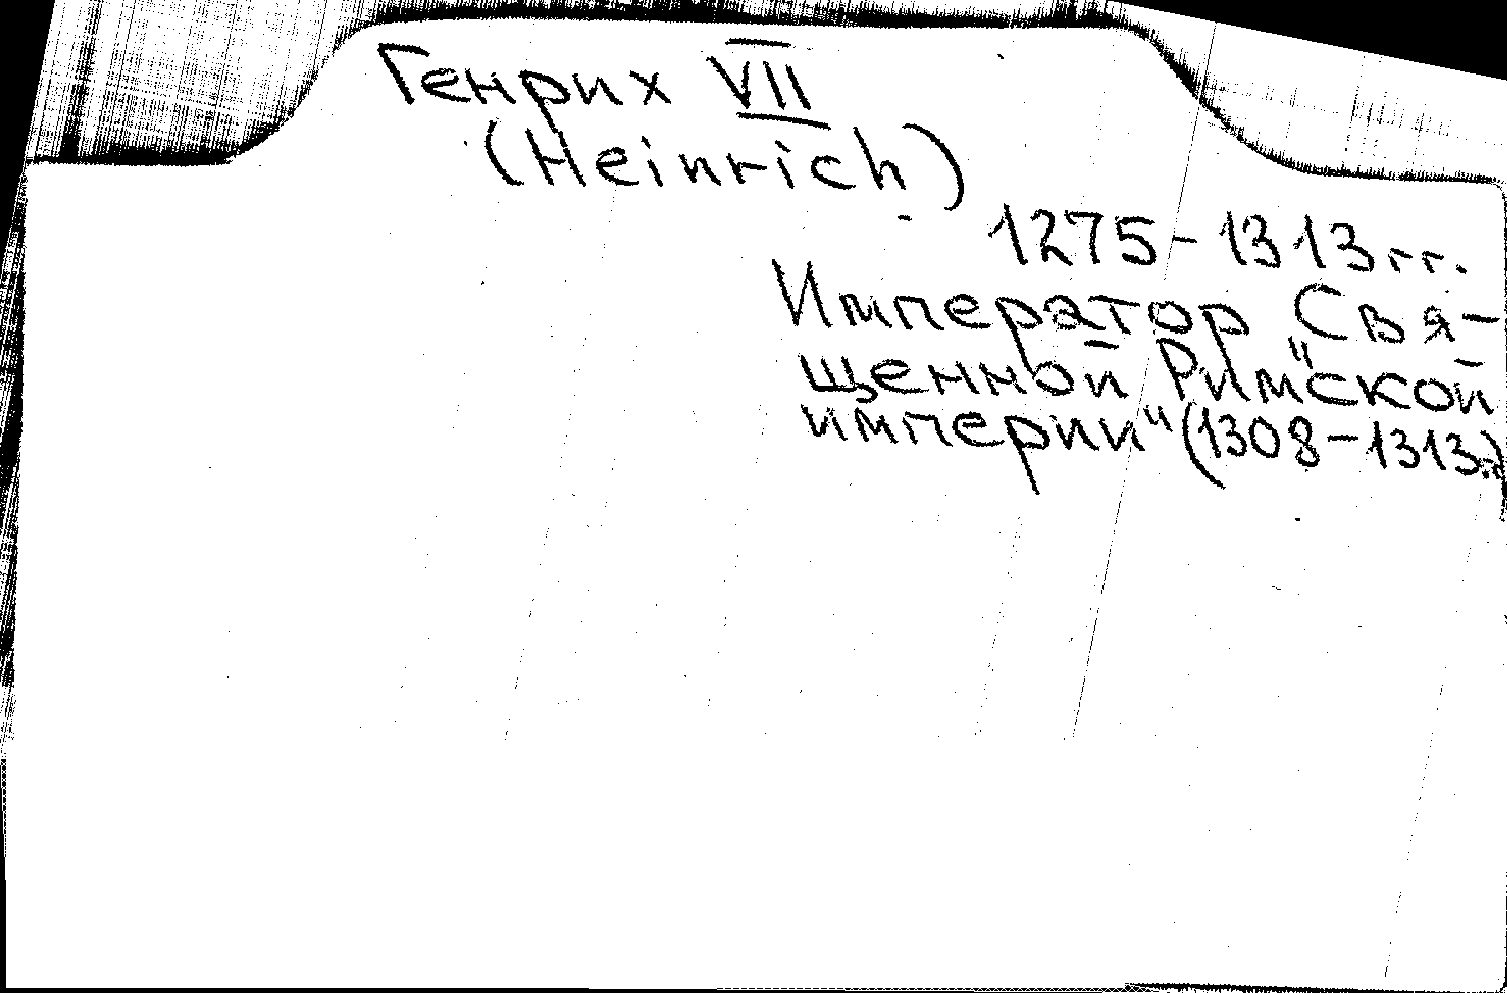 Генрих VII
(Heinrich)
1275-1313 гг.
Император Свя-
щенной Рим"ской
империи" (1308-1313гг)